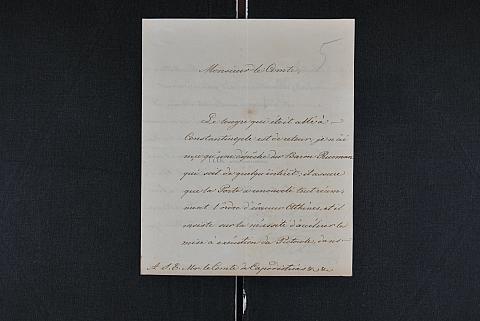 5
Monsieur le Comte,
Le congre qui étoit allé à
Constantinople est de retour, je n'ai
reçu qu'une dépêche du Baron Ruckman
qui soit de quelqu'intérêt; il assure
que la Porte a renouvelé tout récem-
ment l'ordre d'évacuer Athènes, et il
insiste sur la nécessité d'accélérer la
mise à exécution du Protocole, dans
A. S. E. Mr. le Comte de Capodistrias &c &c